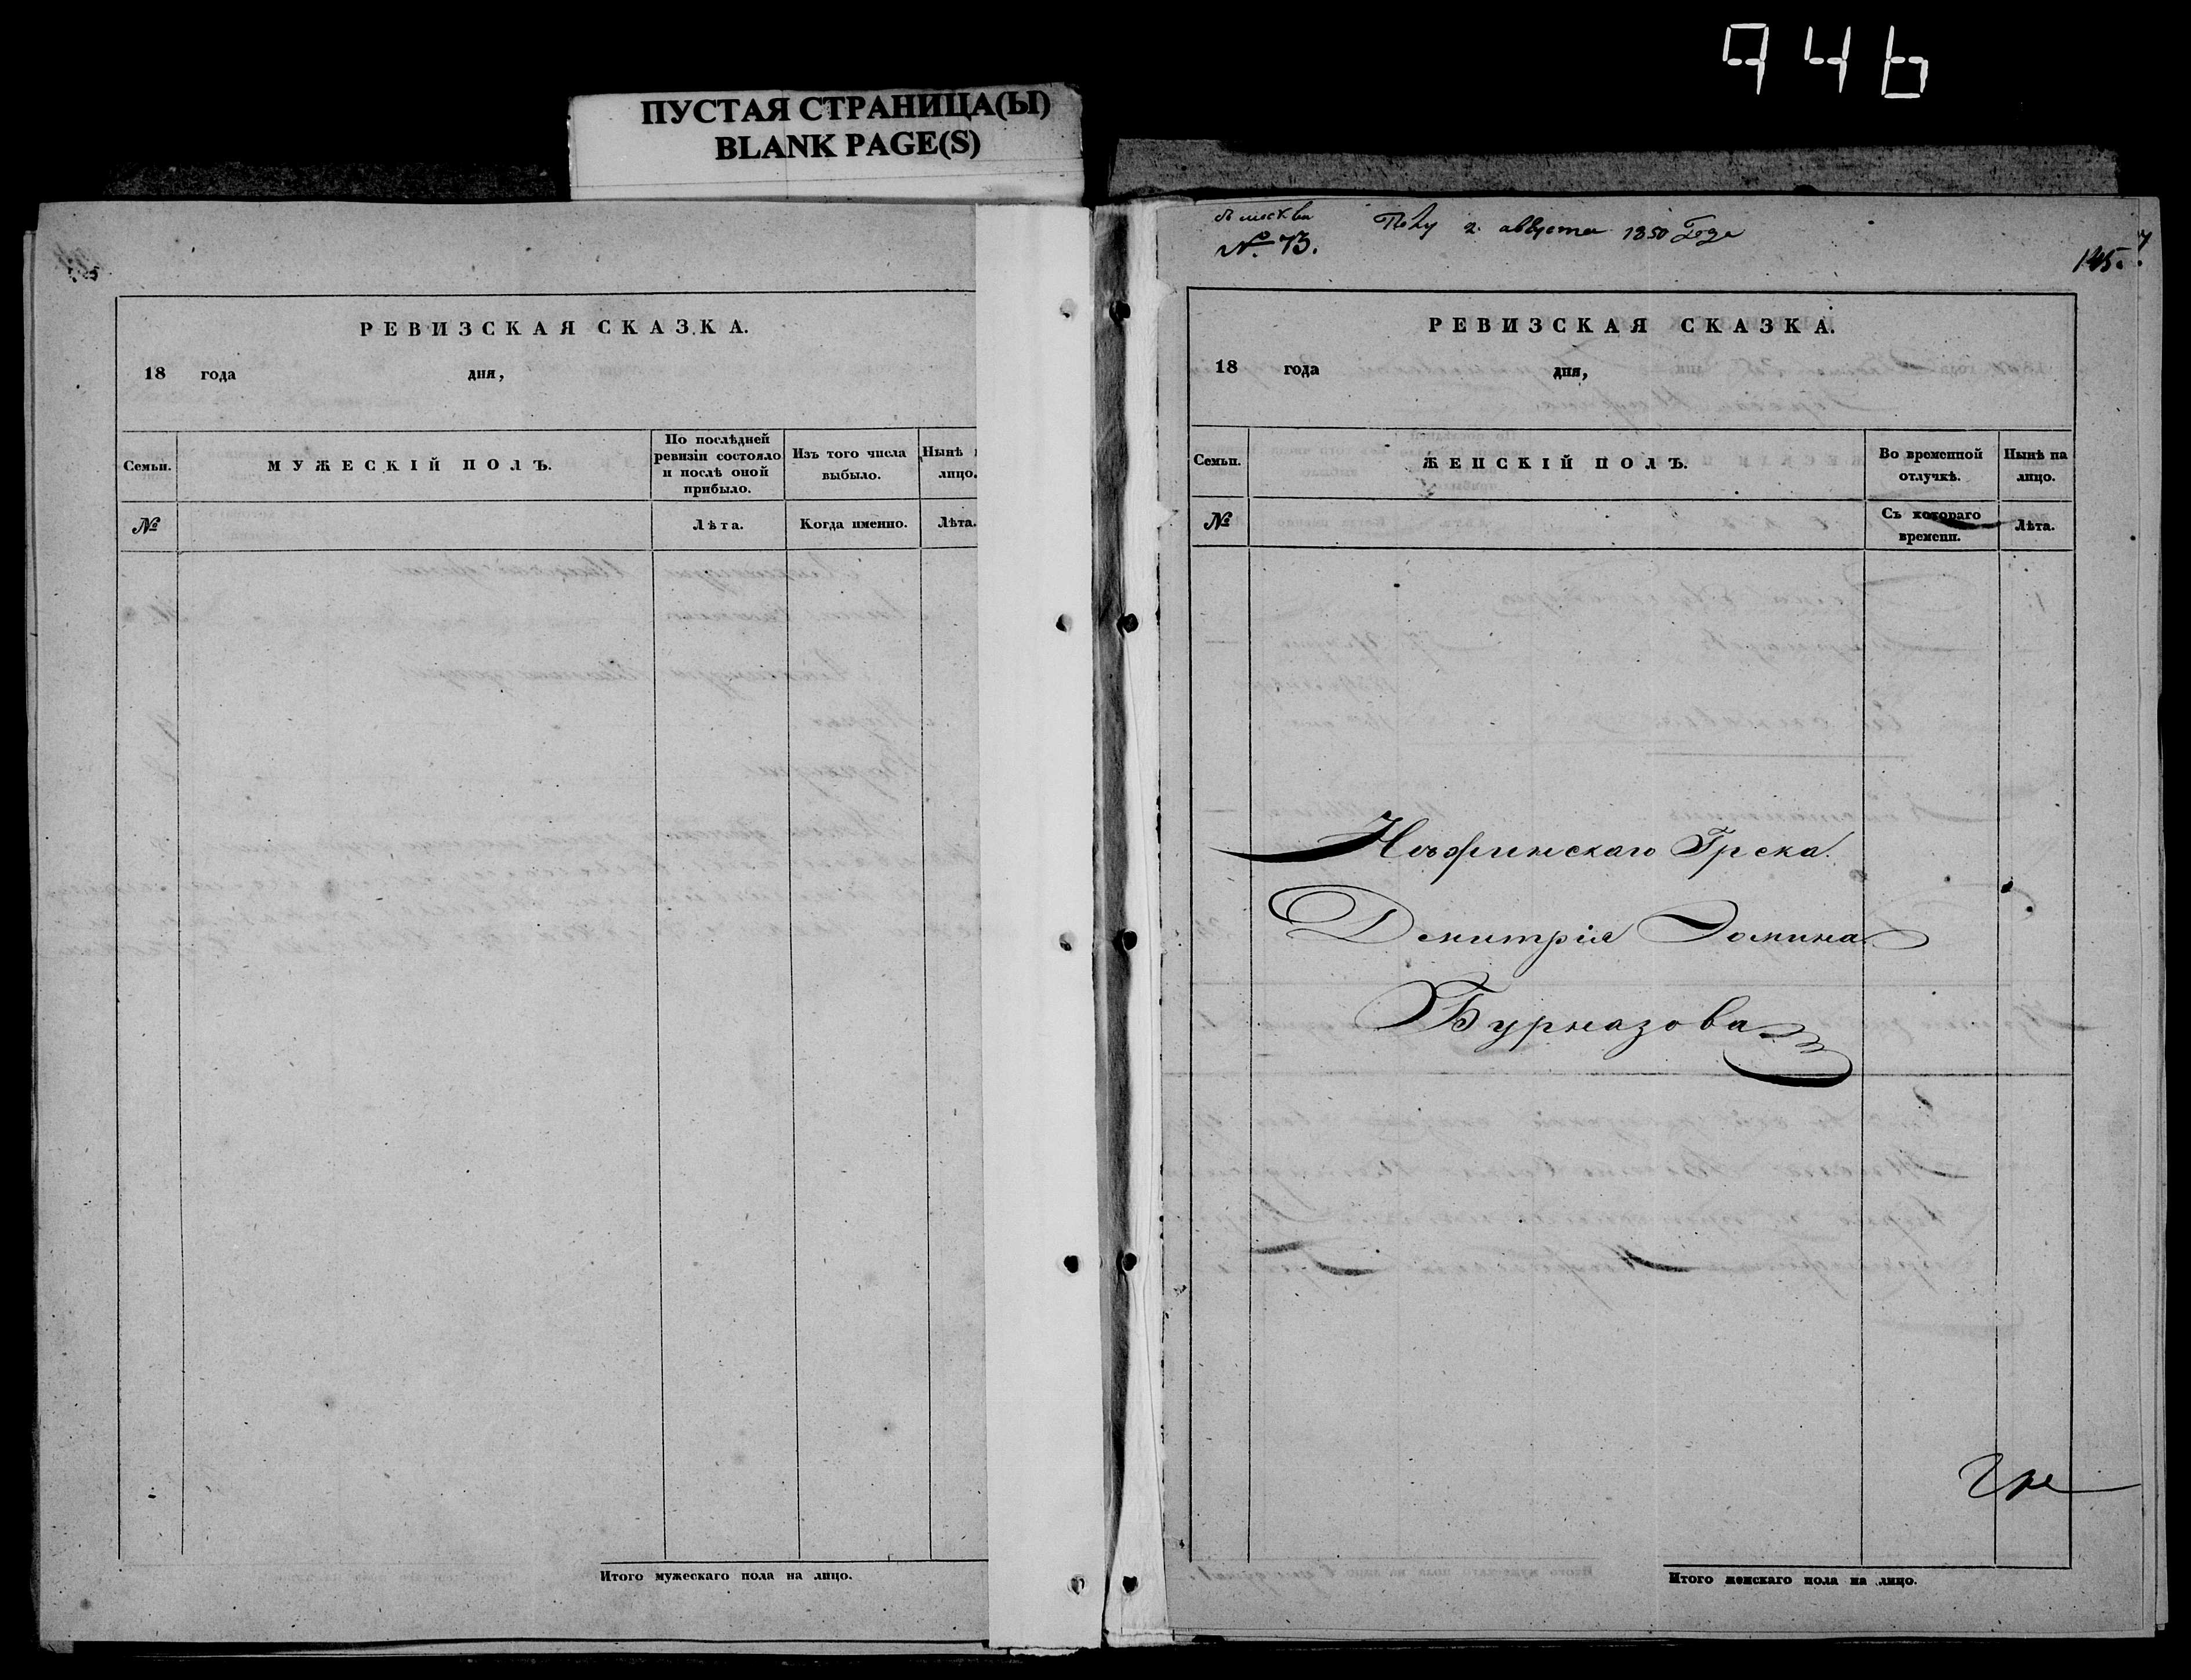 946
ПУСТАЯ СТРАНИЦА(Ы)
BLANK PAGE(S)
РЕВИЗСКАЯ СКАЗКА.
18 года дня,
Семьи.
МУЖЕСКІЙ ПОЛЪ.
По послѣдней
ревизіи состояло
и послѣ оной
прибыло.
Изъ того числа
выбыло.
Нынѣ
лицо.
№
Лѣта.
Когда именно.
Лѣта.
Итого мужескаго пола на лицо.
№ 73.
2 августа 1850 года
145.
РЕВИЗСКАЯ СКАЗКА.
18 года дня,
Семьи.
ЖЕНСКІЙ ПОЛЪ.
Во временной
отлучкѣ.
Нынѣ на
лицо.
№
Съ котораго
времени.
Лѣта.
Грека
Димитрія
Бурназова
Итого женскаго пола на лицо.